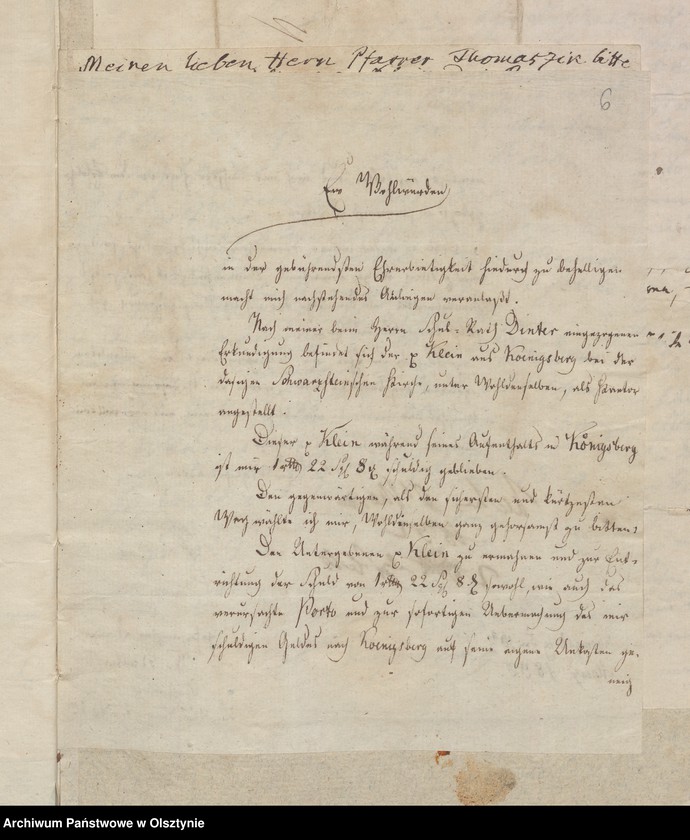 Meinen lieben Herrn Pfarrer Thomaszik bitte
6
Ew Wohlwürden
in der gebührendsten Ehrerbietigkeit hiedurch zu behelligen
macht mich nachstehendes Anliegen veranlaßt.
Nach meiner beim Herrn Schul-Rath Dinter eingezogenen
Erkundigung befindet sich der p Klein aus Koenigsberg bei der
dasigen Schwarzsteinschen Kirche, unter Wohldenselben, als Kantor
angestellt.
Dieser p Klein während seines Aufenthalts in Königsberg
ist mir 1 rthl 22 Sgl 8 ₰ schuldig geblieben.
Den gegenwärtigen, als den sichersten und kürtzesten
Weg wählte ich mir, Wohldenselben ganz gehorsamst zu bitten:
Den Untergebenen p Klein zu ermahnen und zur Ent-
richtung der Schuld von 1 rthl 22 Sgl 8 ₰ sowohl, wie auch das
verursachte Porto und zur sofortigen Uebermachung des mir
schuldigen Geldes nach Koenigsberg auf seine eigene Unkosten ge-
neig
Archiwum Państwowe w Olsztynie